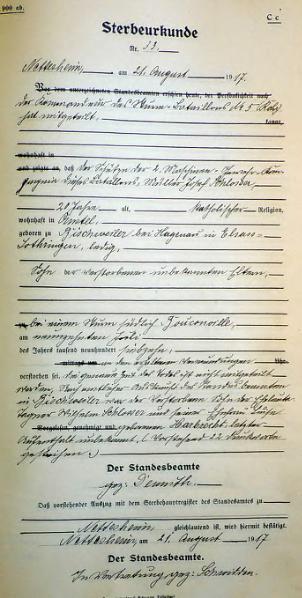 900 eb.
C c
Sterbeurkunde
Nr. 12.
Nettersheim, am 21. August 1917.
Vor dem unterzeichneten Standesbeamten erschien heute, der Persönlichkeit nach
der Kommandeur des Sturm-Bataillons Nr. 5
hat mitgeteilt. kannt,
wohnhaft in
und zeigte an, daß der Schütze der 2. Maschinen-Gewehr-Kom
pagnie dieses Bataillons, Müller Josef Schlosser,
20 Jahre alt, katholischer Religion,
wohnhaft in
geboren zu Bischweiler bei Hagenau in Elsass-
Lothringen, ledig,
Sohn der verstorbenen unbekannten Eltern,
bei einem Sturm südlich Bouconville,
am neunzehnten Juli
des Jahres tausend neunhundert siebzehn,
verstorben sei. Die genaue Zeit des Todes ist nicht mitgeteilt
worden. Nach amtlicher Auskunft des Standesbeamten
in Bischweiler war der Verstorbene Sohn der Eheleute
Wilhelm Schlosser und seiner Ehefrau
Vorgelesen, genehmigt und geborenen letzter
Aufenthalt unbekannt. (Vorstehend 22 Druckworte
gestrichen.)
Der Standesbeamte
gez:
Daß vorstehender Auszug mit dem Sterbehauptregister des Standesamtes zu
Nettersheim gleichlautend ist, wird hiermit bestätigt.
Nettersheim am 21. August 1917
Der Standesbeamte.
In Vertretung gez: